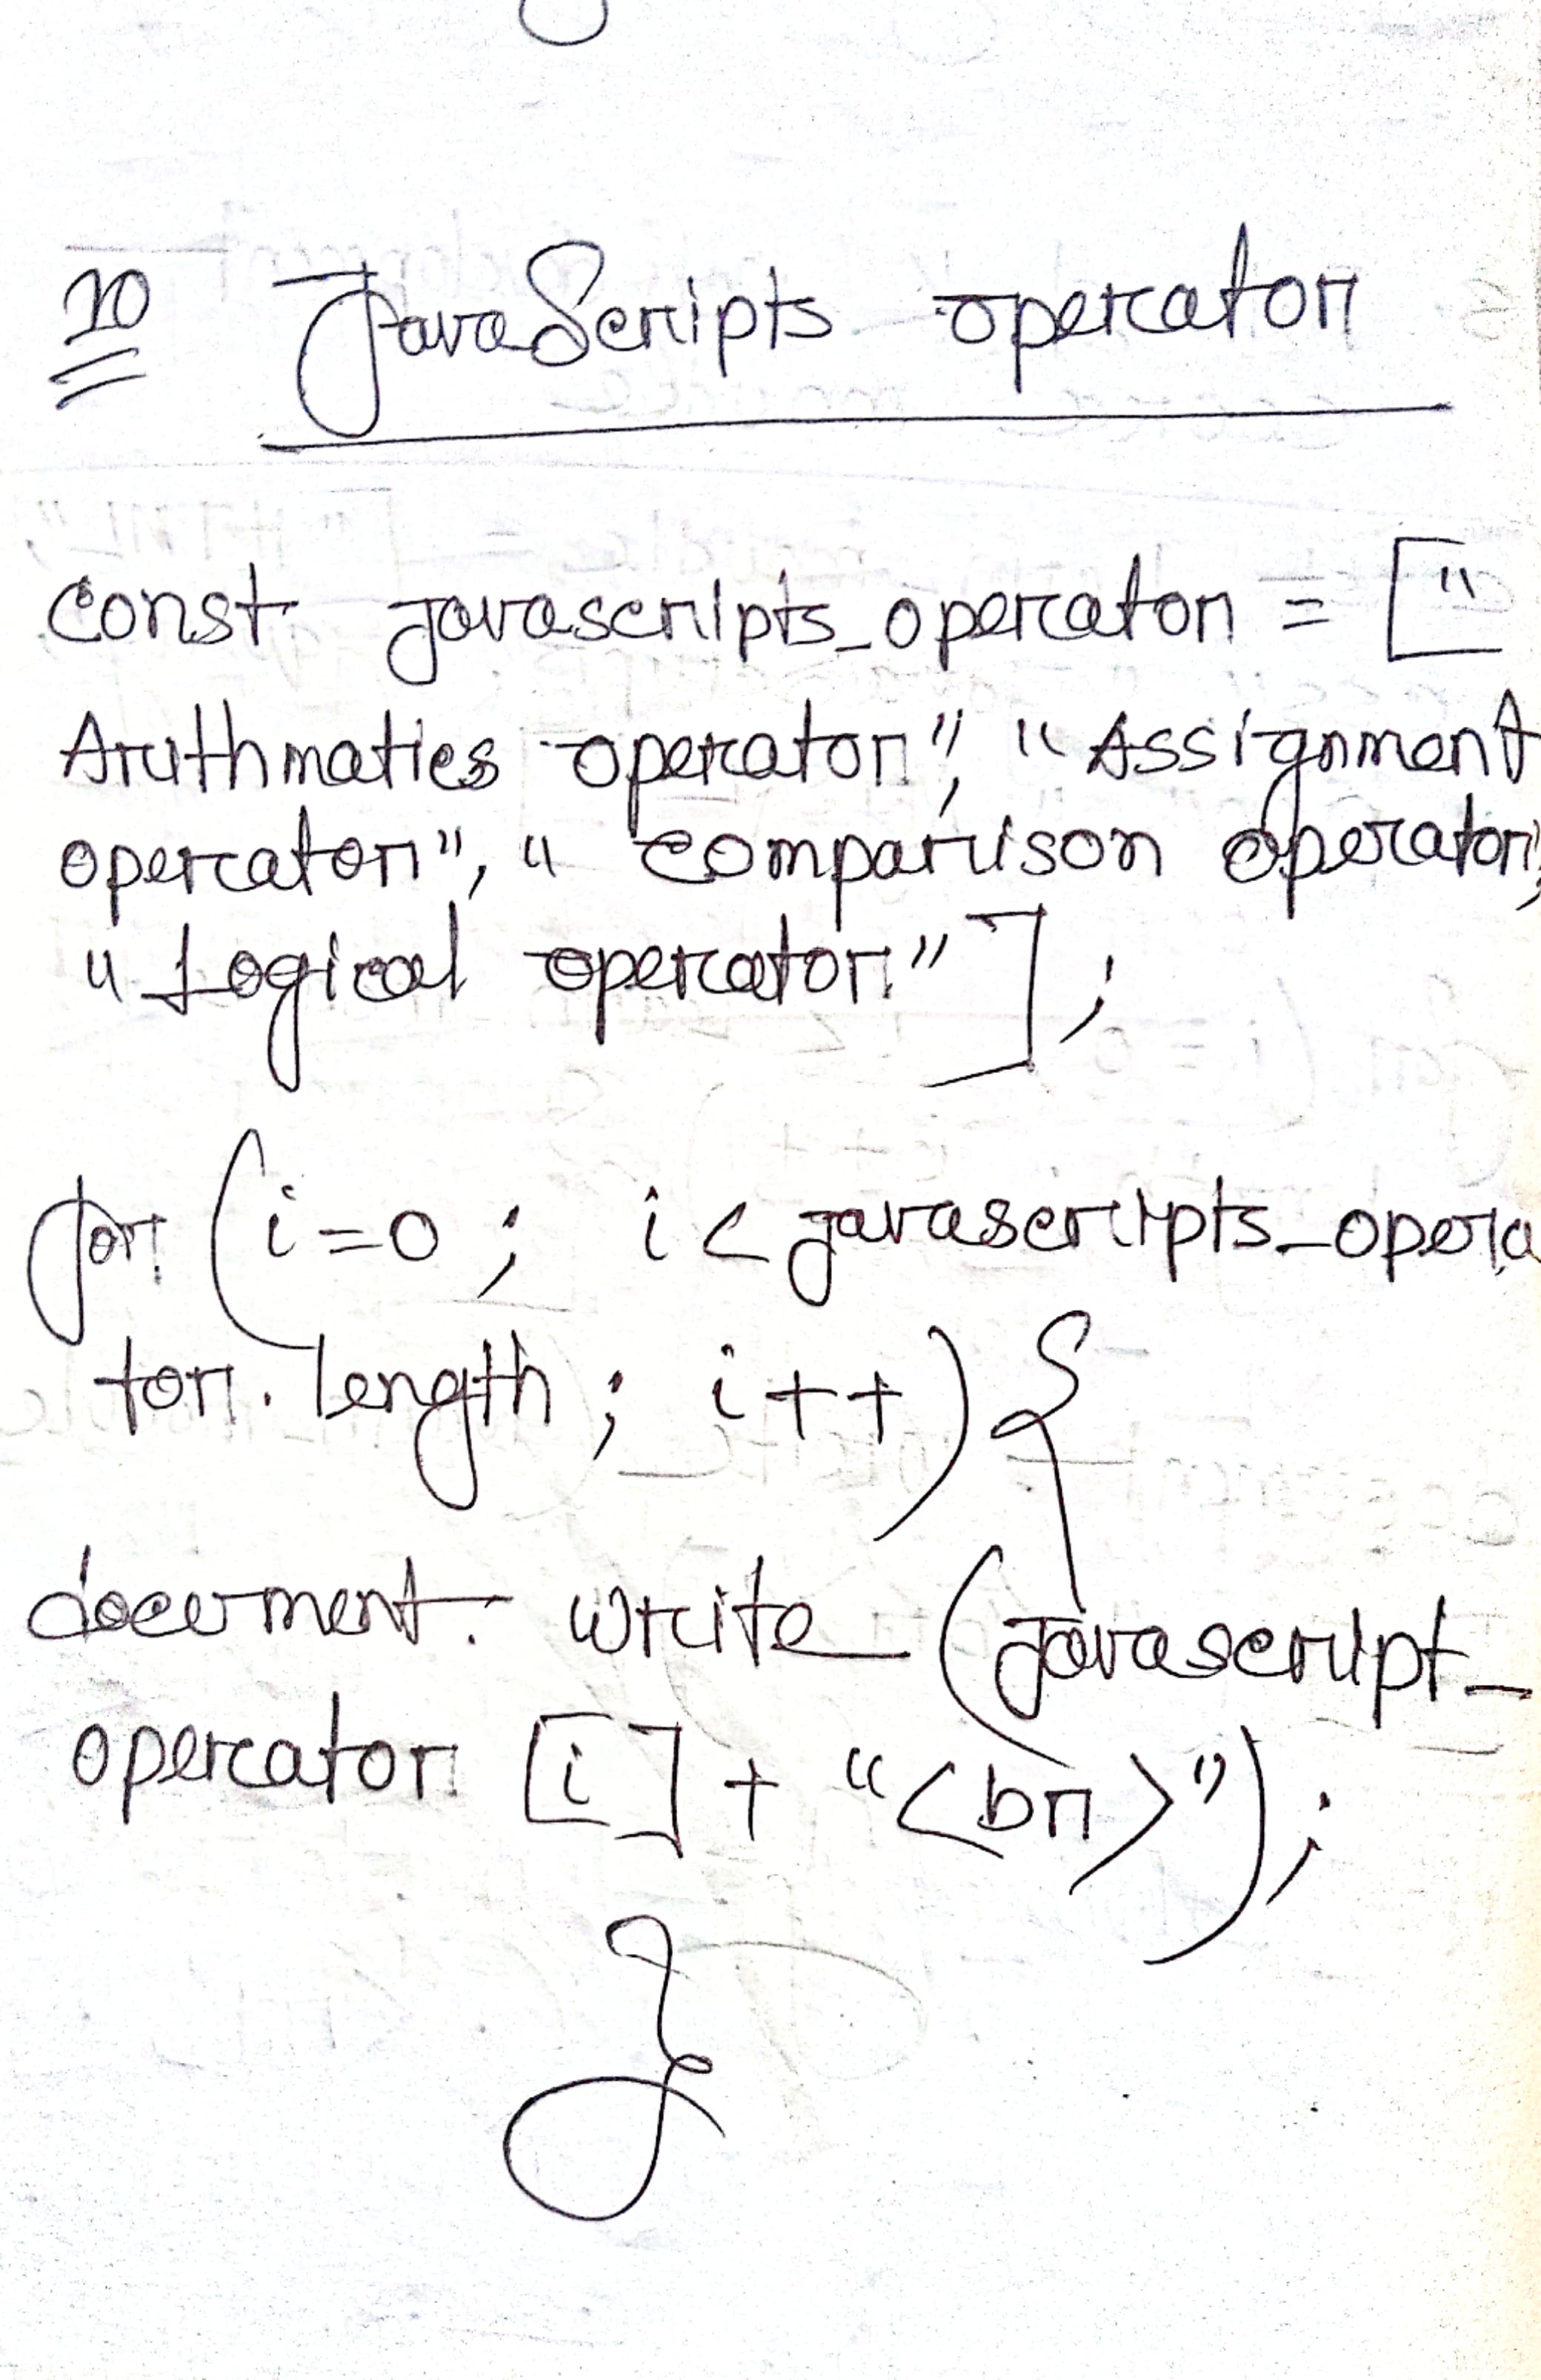 10 JavaScripts operator
const javascripts_operator = ["
Arithmatics operator", "Assignment
operator", "comparison operator",
"Logical operator"];
for (i=0; i < javascripts_opera
tor.length; i++) {
document.write (javascript_
operator [i] + "<br>");
}